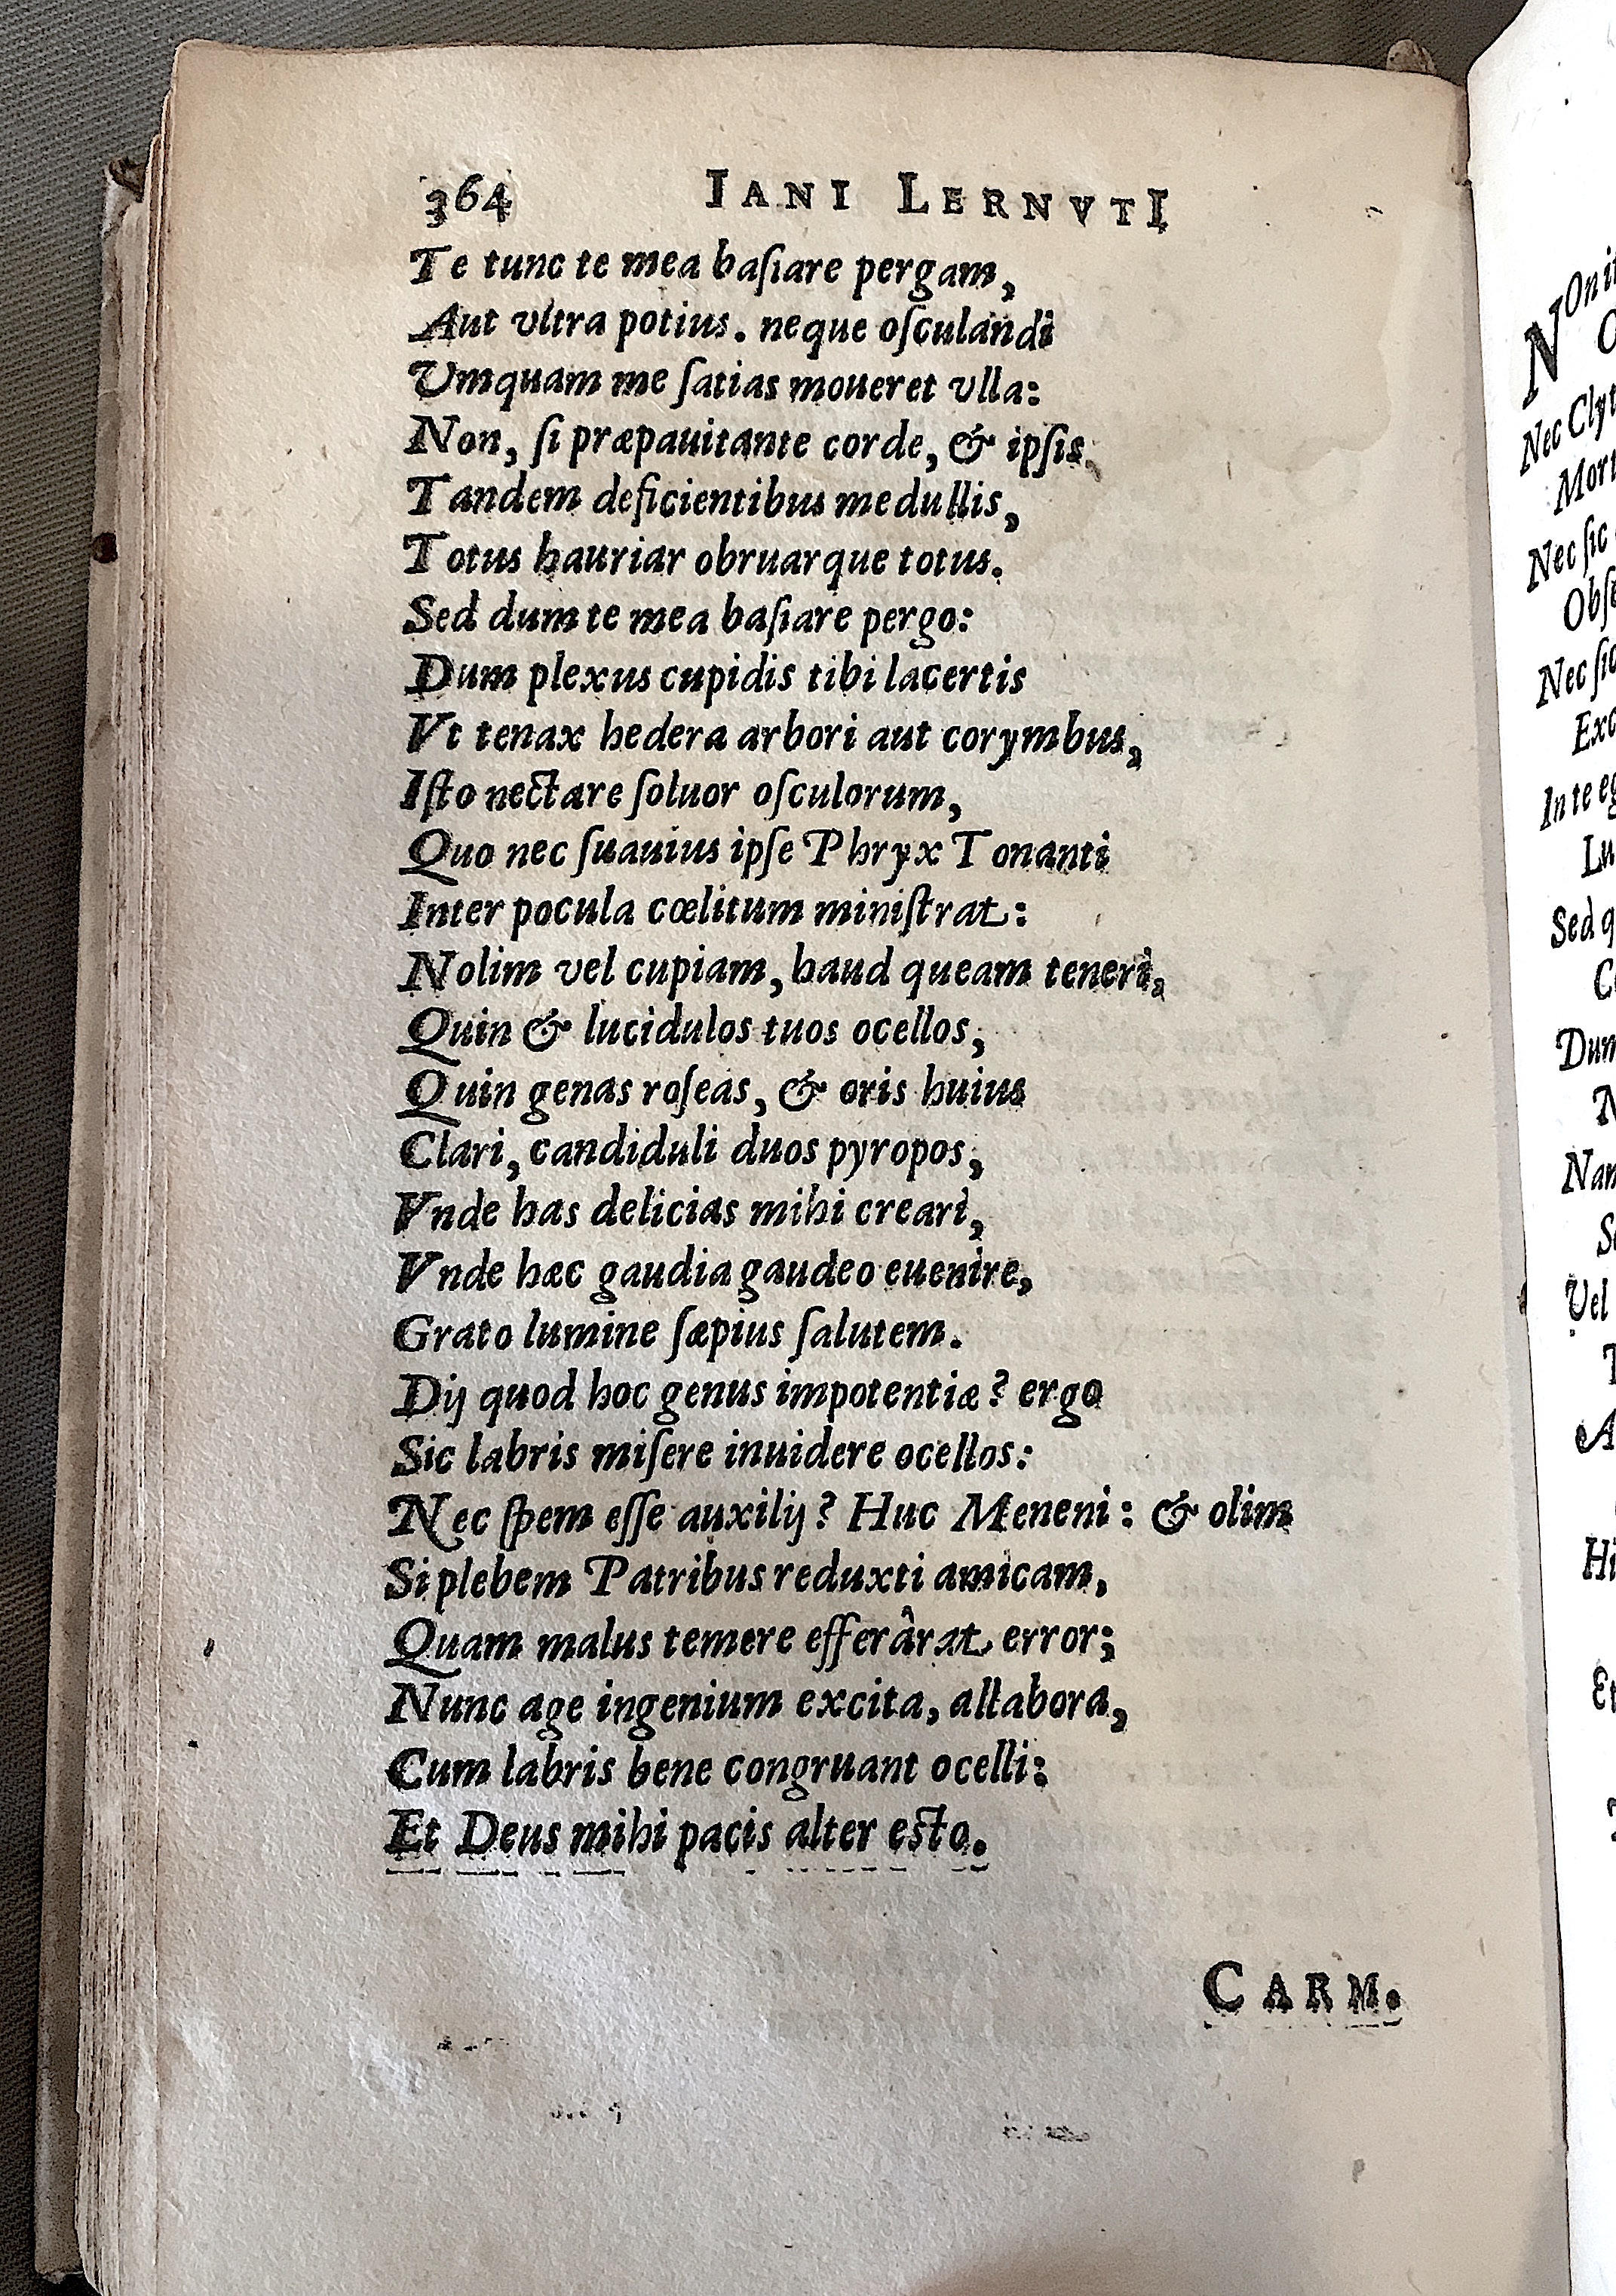 364 IANI LERNVTI
Te tunc te mea baſiare pergam,
Aut vltra potius. neque oſculandi
Umquam me ſatias moueret vlla:
Non, ſi præpauitante corde, & ipſis,
Tandem deficientibus medullis,
Totus hauriar obruarque totus.
Sed dum te mea baſiare pergo:
Dum plexus cupidis tibi lacertis
Vt tenax hedera arbori aut corymbus,
Iſto nectare ſoluor oſculorum,
Quo nec ſuauius ipſe Phryx Tonanti
Inter pocula cœlitum miniſtrat:
Nolim vel cupiam, haud queam teneri,
Quin & lucidulos tuos ocellos,
Quin genas roſeas, & oris huius
Clari, candiduli duos pyropos,
Vnde has delicias mihi creari,
Vnde hæc gaudia gaudeo euenire,
Grato lumine ſæpius ſalutem.
Dij quod hoc genus impotentiæ? ergo
Sic labris miſere inuidere ocellos:
Nec ſpem eſſe auxilij? Huc Meneni: & olim
Si plebem Patribus reduxti amicam,
Quam malus temere efferârat error;
Nunc age ingenium excita, allabora,
Cum labris bene congruant ocelli:
Et Deus mihi pacis alter eſto.
CARM.
Nec Clyt
Nec ſic
Nec ſic
In te eg
Sed q
Vel